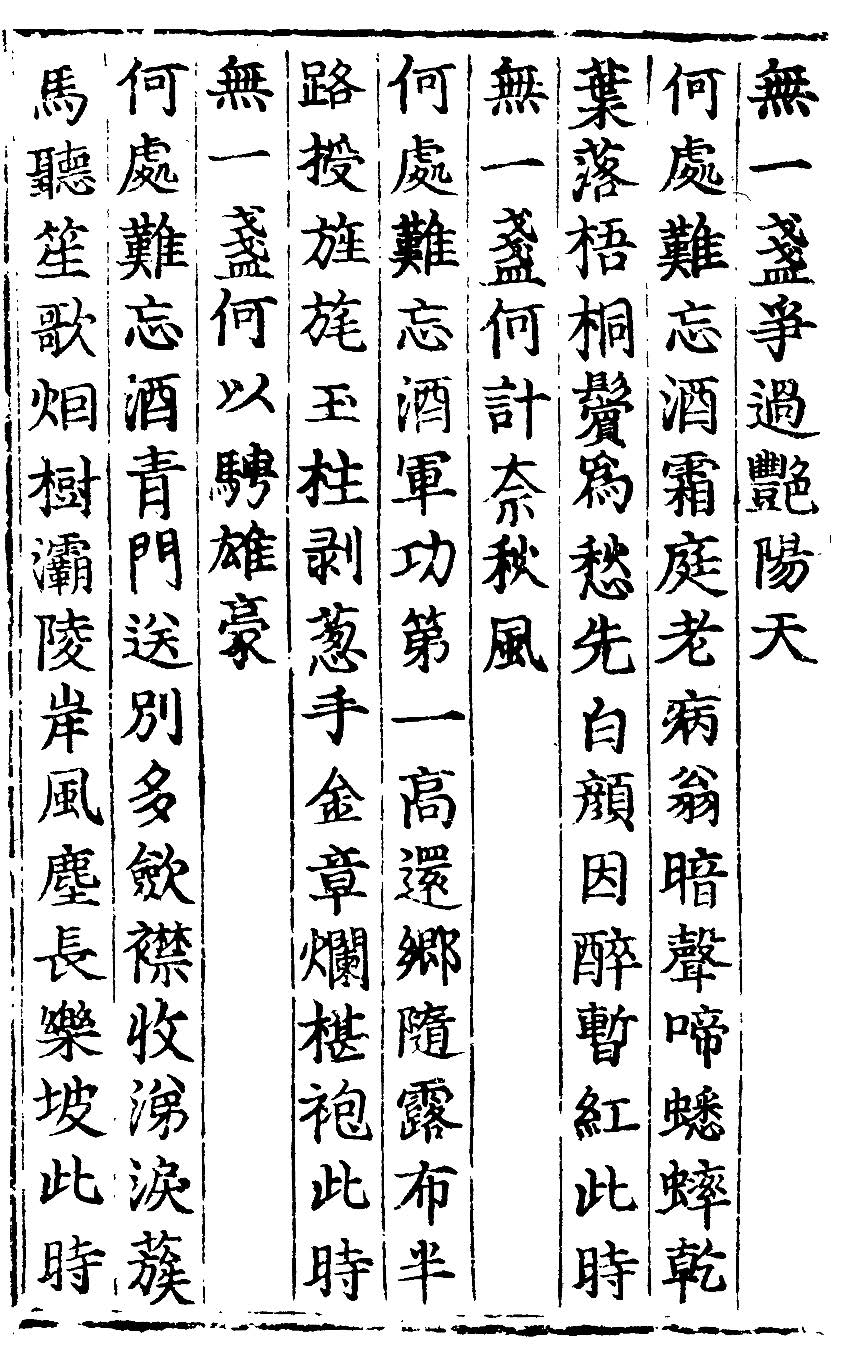 無一盞爭過艷陽天
何處難忘酒霜庭老病翁暗聲啼蟋蟀乾
葉落梧桐鬢爲愁先白顔因醉暫紅此時
無一盞何計奈秋風
何處難忘酒軍功第一高還鄉隨露布半
路授旌旄玉柱剥葱手金章爛椹袍此時
無一盞何以騁雄豪
何處難忘酒青門送別多歛襟收涕淚蔟
馬聽笙歌烟樹灞陵岸風塵長樂坡此時